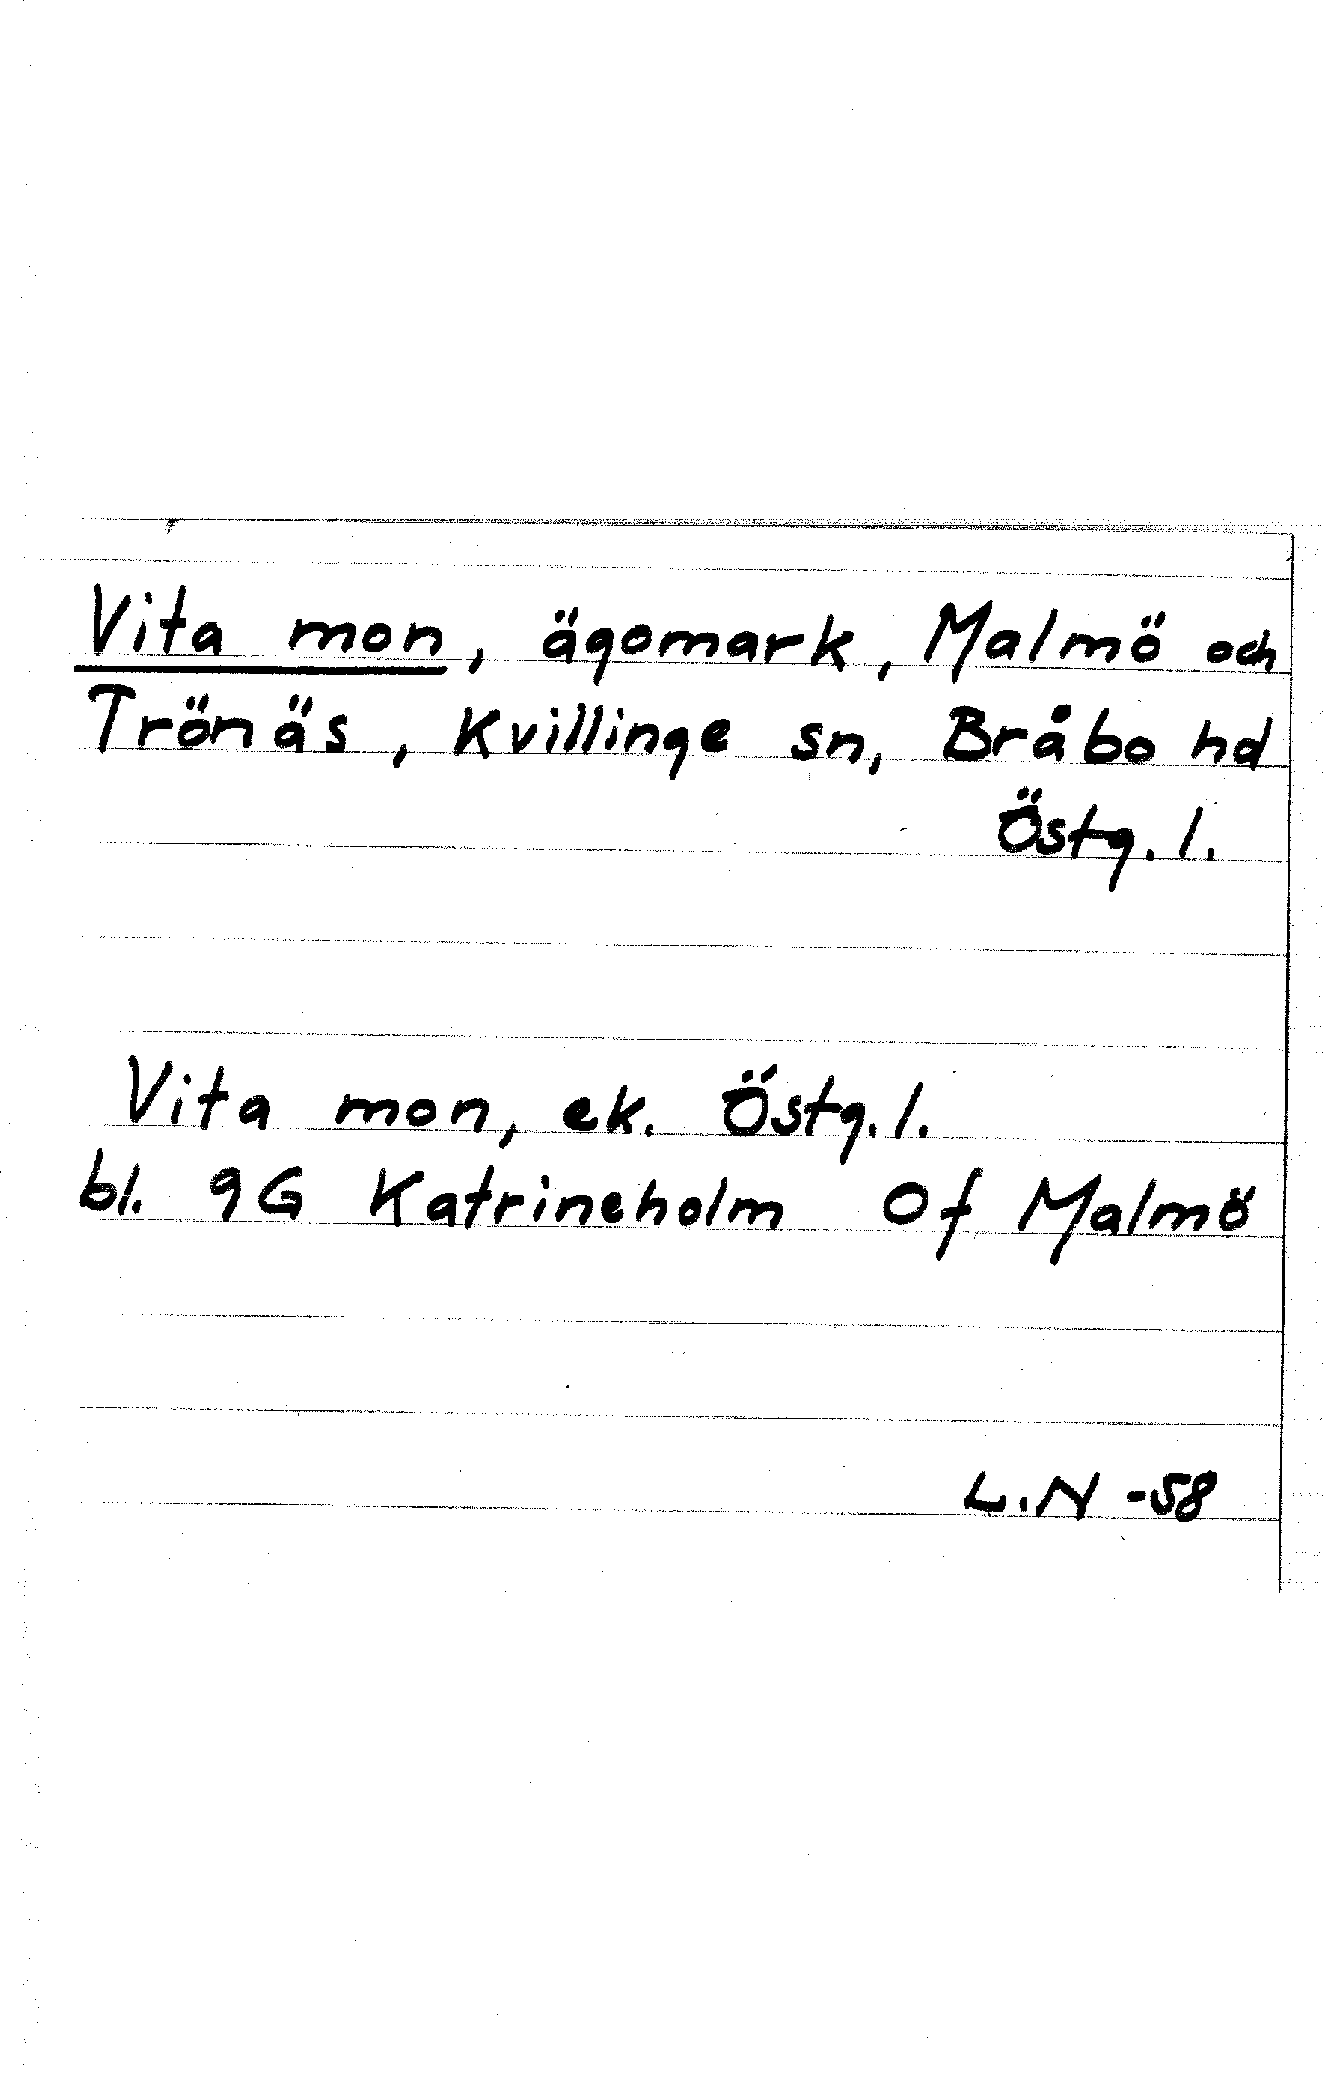 Vita mon, ägomark, Malmö och
Trönäs, Kvillinge sn, Bråbo hd
Östg. l.
Vita mon, ek. Östg. l.
bl. 9G Katrineholm Of Malmö
L.N -58